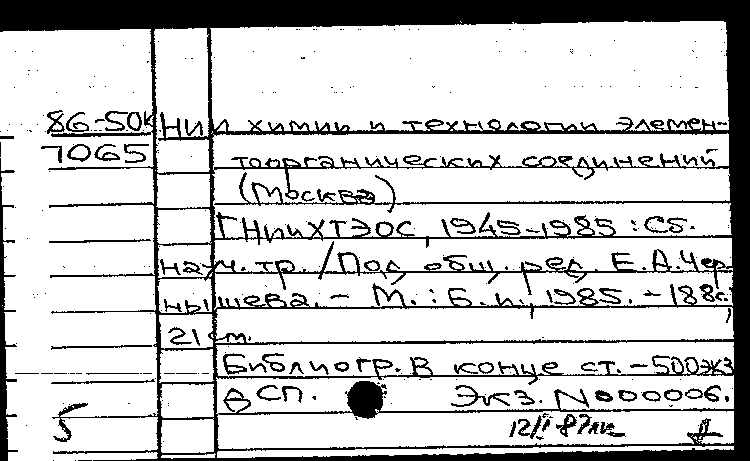 86-50к НИИ химии и технологии элемен-
7065 тоорганических соединений
(Москва)
ГНИИХТЭОС, 1945-1985 : Сб.
науч. тр. / Под общ. ред. Е.А.Чер-
нышева. - М. : Б.и., 1985. - 188с.;
21 см.
Библиогр. в конце ст. - 500экз
ДСП. Экз. N000006.
5